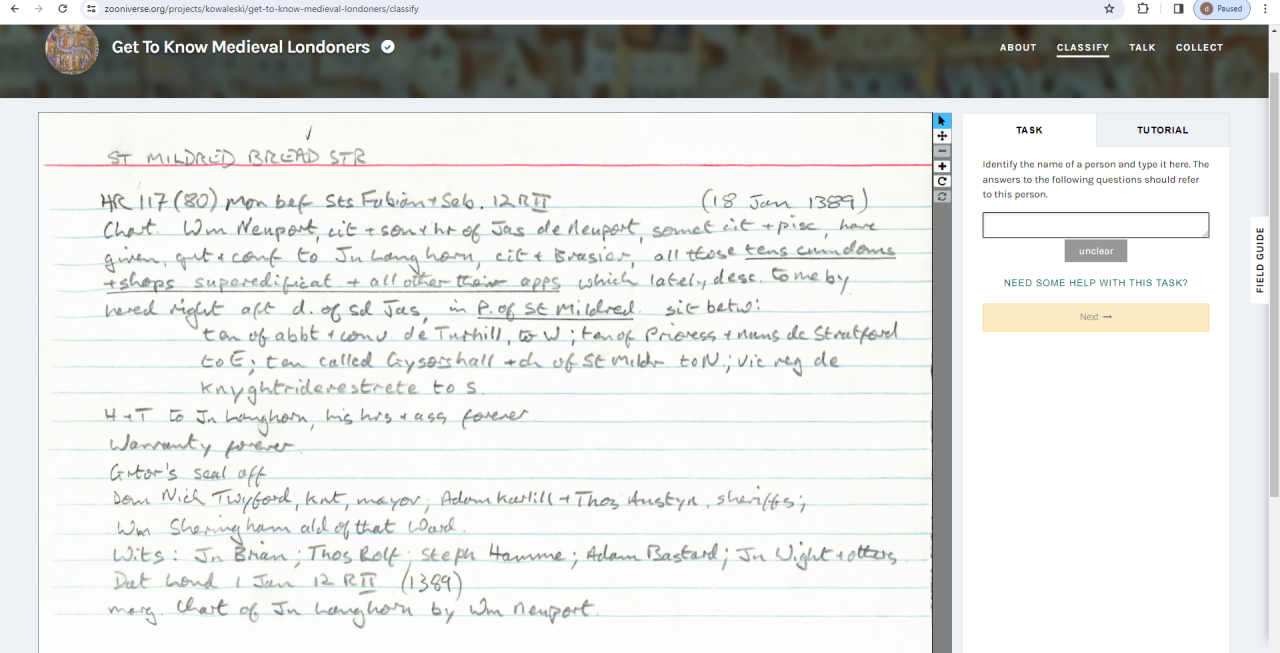 zooniverse.org/projects/kowaleski/get-to-know-medieval-londoners/classify
d Paused
Get To Know Medieval Londoners
ABOUT CLASSIFY TALK COLLECT
ST MILDRED BREAD STR
HR 117 (80) Mon bef Sts Fabian + Seb. 12 R II (18 Jan 1389)
Chart. Wm Neuport, cit + son + hr of Jas de Neuport, somet cit + pisc, have
given, grt + conf to Jn Langhorn, cit + Brasier, all those tens cum doms
+ shops superedificat + all other their apps which lately desc. to me by
hered right aft d. of sd Jas, in P. of St Mildred. sit betw:
ten of abbt + conv de Turhill, to W; ten of Prioress + nuns de Stratford
to E; ten called Gysorshall + ch of St Mildr to N.; vic reg de
Knyghtriderestrete to S.
H + T to Jn Langhorn, his hrs + ass forever
Warranty forever.
Grtor's seal off
Dom Nich Twyford, knt, mayor; Adam Karlill + Thos Austyn, sheriffs;
Wm Sheringham ald of that Ward.
Wits: Jn Brian; Thos Rolf; Steph Hamme; Adam Bastard; Jn Wight + others
Dat Lond 1 Jan 12 R II (1389)
marg. Chart of Jn Langhorn by Wm Neuport.
TASK TUTORIAL
Identify the name of a person and type it here. The
answers to the following questions should refer
to this person.
unclear
NEED SOME HELP WITH THIS TASK?
Next →
FIELD GUIDE